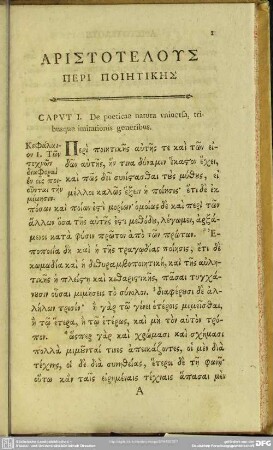 1
ΑΡΙΣΤΟΤΕΛΟΥΣ
ΠΕΡΙ ΠΟΙΗΤΙΚΗΣ
CAPVT I. De poeticae natura vniuersa, tri-
busque imitationis generibus.
Περὶ ποιητικῆς αὐτῆς τε καὶ τῶν εἰ-
δῶν αὐτῆς, ἥν τινα δύναμιν ἕκαστον ἔχει,
καὶ πῶς δεῖ συνίστασθαι τοὺς μύθους, εἰ
μέλλοι καλῶς ἕξειν ἡ ποίησις· ἔτι δὲ ἐκ
πόσων καὶ ποίων ἐστὶ μορίων· ὁμοίως δὲ καὶ περὶ τῶν
ἄλλων ὅσα τῆς αὐτῆς ἐστι μεθόδου, λέγωμεν, ἀρξά-
μενοι κατὰ φύσιν πρῶτον ἀπὸ τῶν πρώτων. Ἐ-
ποποιΐα δὴ καὶ ἡ τῆς τραγῳδίας ποίησις, ἔτι δὲ
κωμῳδία καὶ ἡ διθυραμβοποιητικὴ, καὶ τῆς αὐλητι-
κῆς ἡ πλείστη καὶ κιθαριστικῆς, πᾶσαι τυγχά-
νουσιν οὖσαι μιμήσεις τὸ σύνολον. διαφέρουσι δὲ ἀλ-
λήλων τρισίν· ἢ γὰρ τῷ γένει ἑτέροις μιμεῖσθαι,
ἢ τῷ ἕτερα, ἢ τῷ ἑτέρως, καὶ μὴ τὸν αὐτὸν τρό-
πον. ὥσπερ γὰρ καὶ χρώμασι καὶ σχήμασι
πολλὰ μιμοῦνταί τινες ἀπεικάζοντες, οἱ μὲν διὰ
τέχνης, οἱ δὲ διὰ συνηθείας, ἕτεροι δὲ τῇ φωνῇ·
οὕτω κἀν ταῖς εἰρημέναις τέχναις ἅπασαι μὲν
A
Κεφάλαι-
ον Ι. Τῶν
τεχνῶν
διαφοραὶ